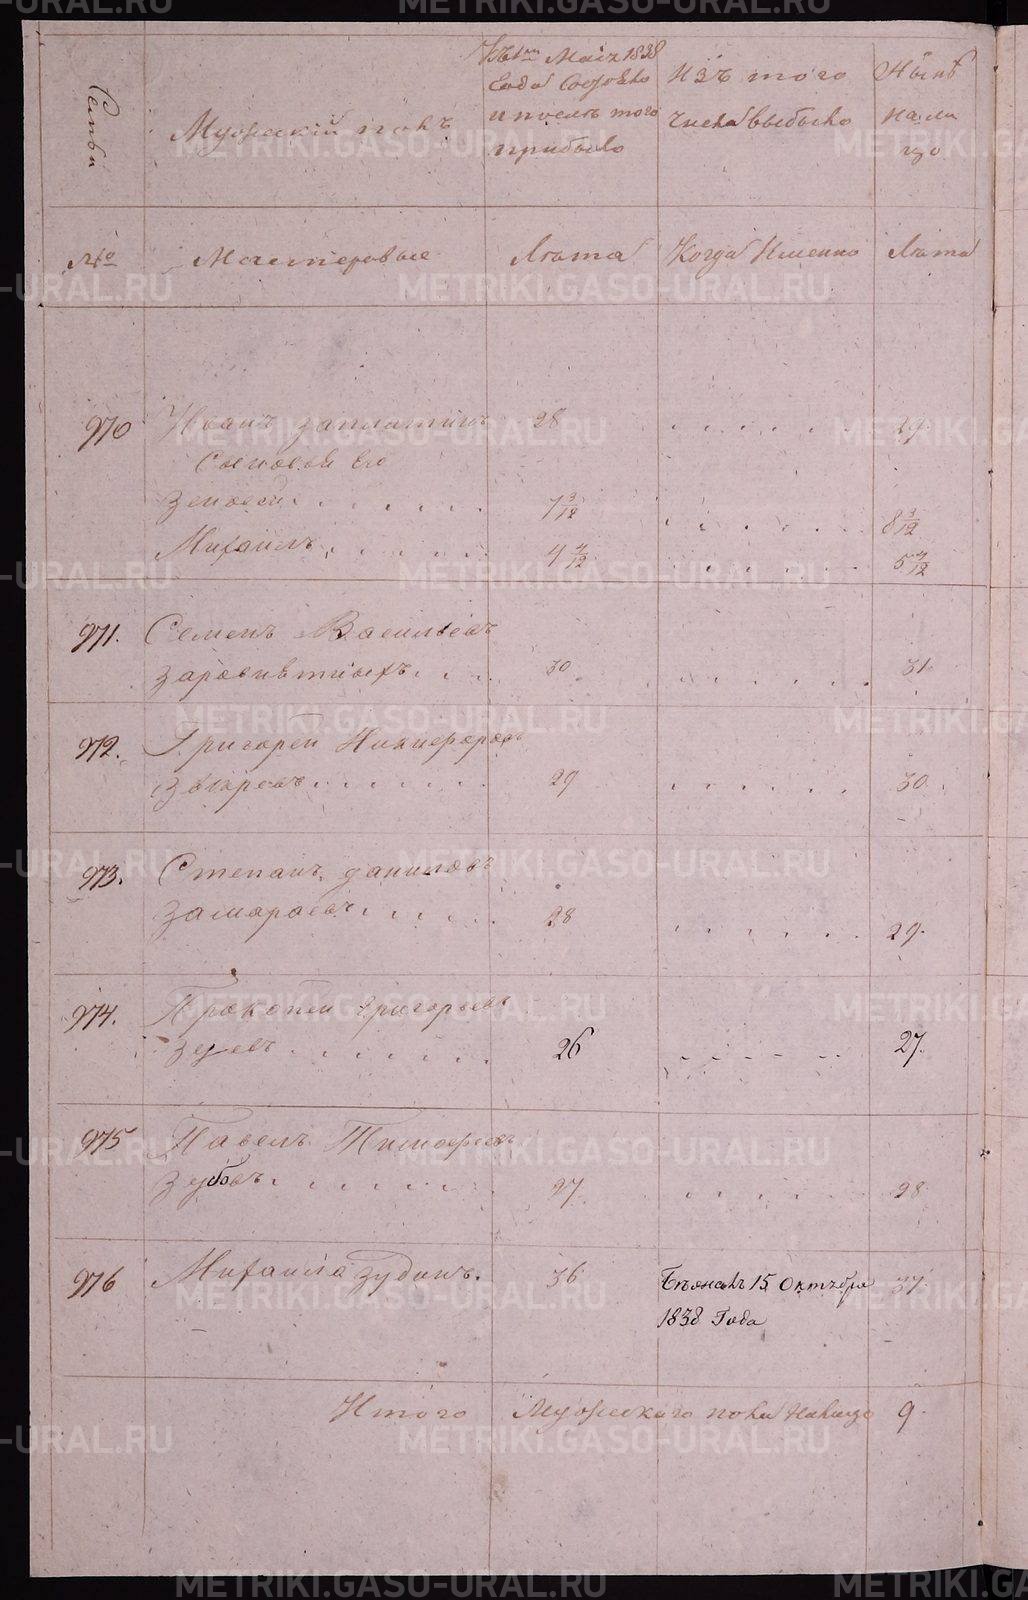 Семьи
Мужескій полъ
Къ 1му Маія 1838
Года Состояло
и послѣ того
прибыло
Изъ того
числа выбыло
Нынѣ
на ли
цо
№
Мастеровые
Лѣта
Когда Именно
Лѣта
970 Иванъ Заплатинъ 28 . . . . . . 29.
Сыновья его
Зеновей . . . . . . 7 3/12 . . . . . . 8 3/12
Михаилъ . . . . . . 4 4/12 . . . . . . 5 4/12
971. Семенъ Васильевъ
. . . 30 . . . . . . 31.
972. Григорей Никифоровъ
Зыкровъ . . . . . . 29 . . . . . . 30.
973. Степанъ Даниловъ
Замараевъ . . . . . 28 . . . . . . 29.
974. Прокопей Григорьевъ
Зуевъ . . . . . . 26 . . . . . . 27.
975 Павелъ Тимофеевъ
Зубовъ . . . . . . 27 . . . . . . 28
976 Михаила Зудинъ. 36 Бѣжалъ 15 Октября 37.
1838 Года
Итого Мужескаго пола Налицо 9.
METRIKI.GASO-URAL.RU